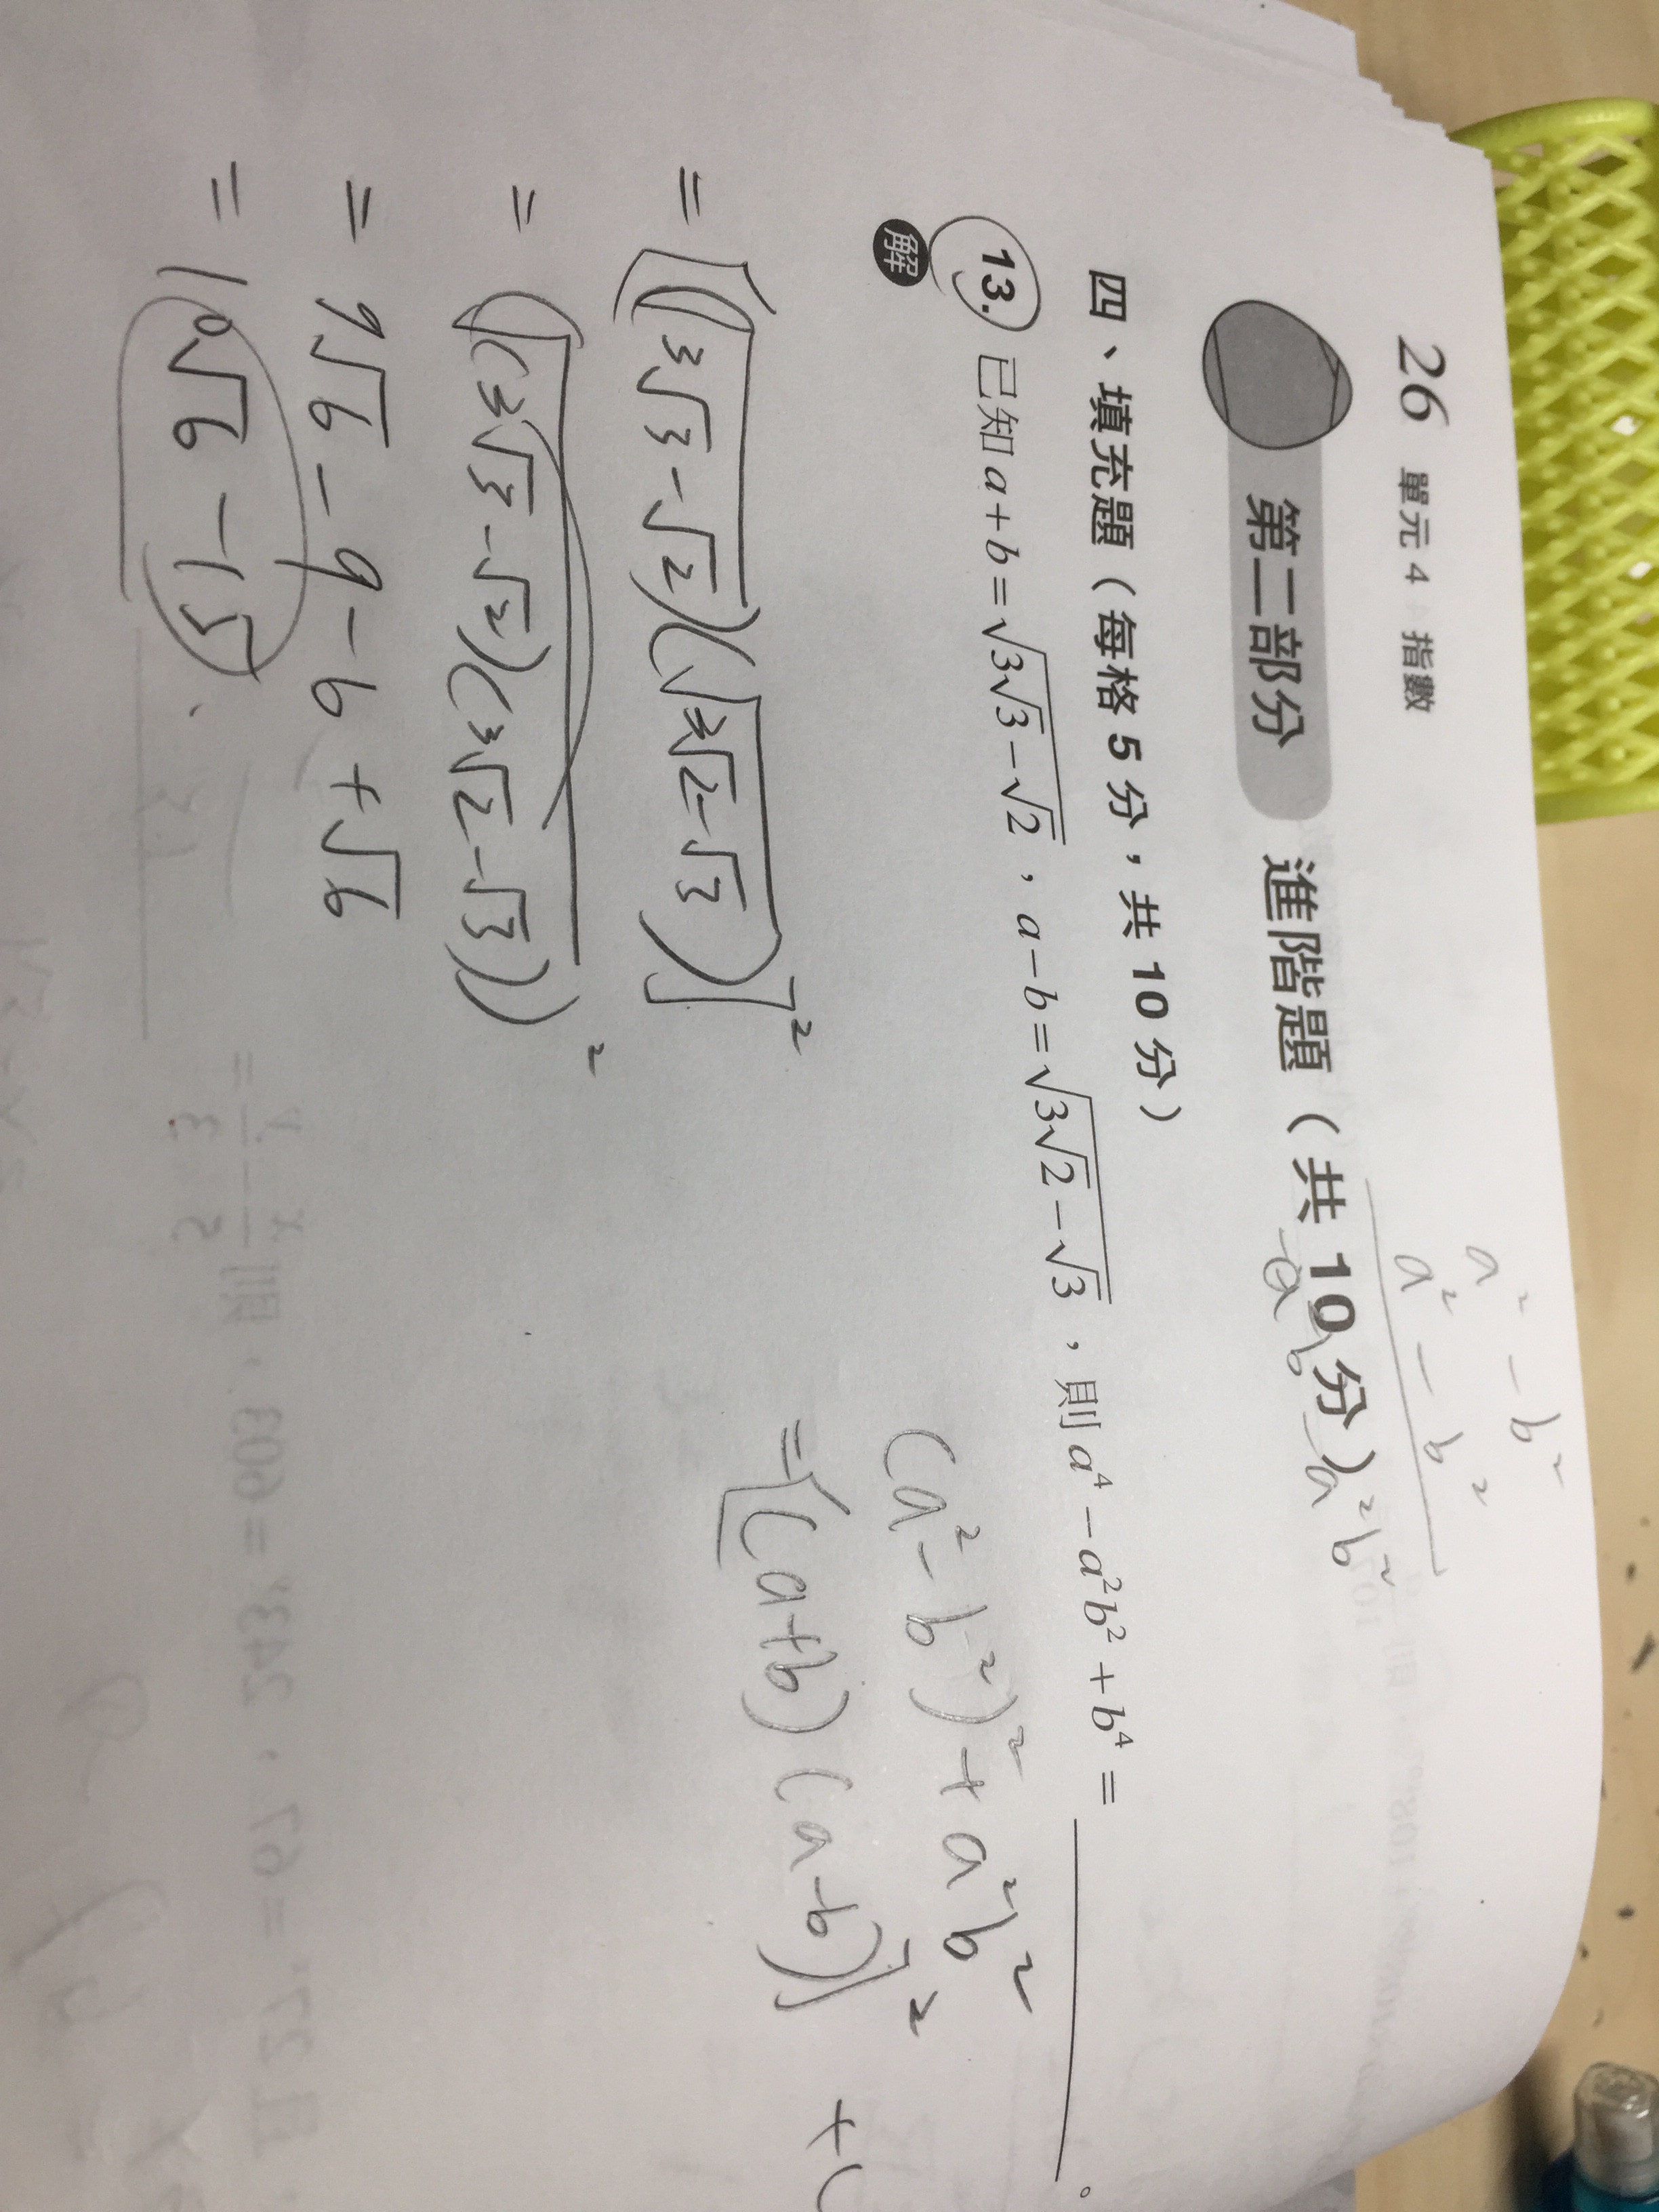 26 單元 4 指數
a² - b²
a² - b²
第二部分 進階題（共 10 分）
a²b²
四、填充題（每格 5 分，共 10 分）
13. 已知 a+b=√(3√3-√2)，a-b=√(3√2-√3)，則 a⁴-a²b²+b⁴= ______。
解
(a²-b²)²+a²b²
=[(a+b)(a-b)]² +(
=[(√(3√3-√2))(√(3√2-√3))]²
=(√((3√3-√2)(3√2-√3)))²
=9√6-9-6+√6
=10√6-15